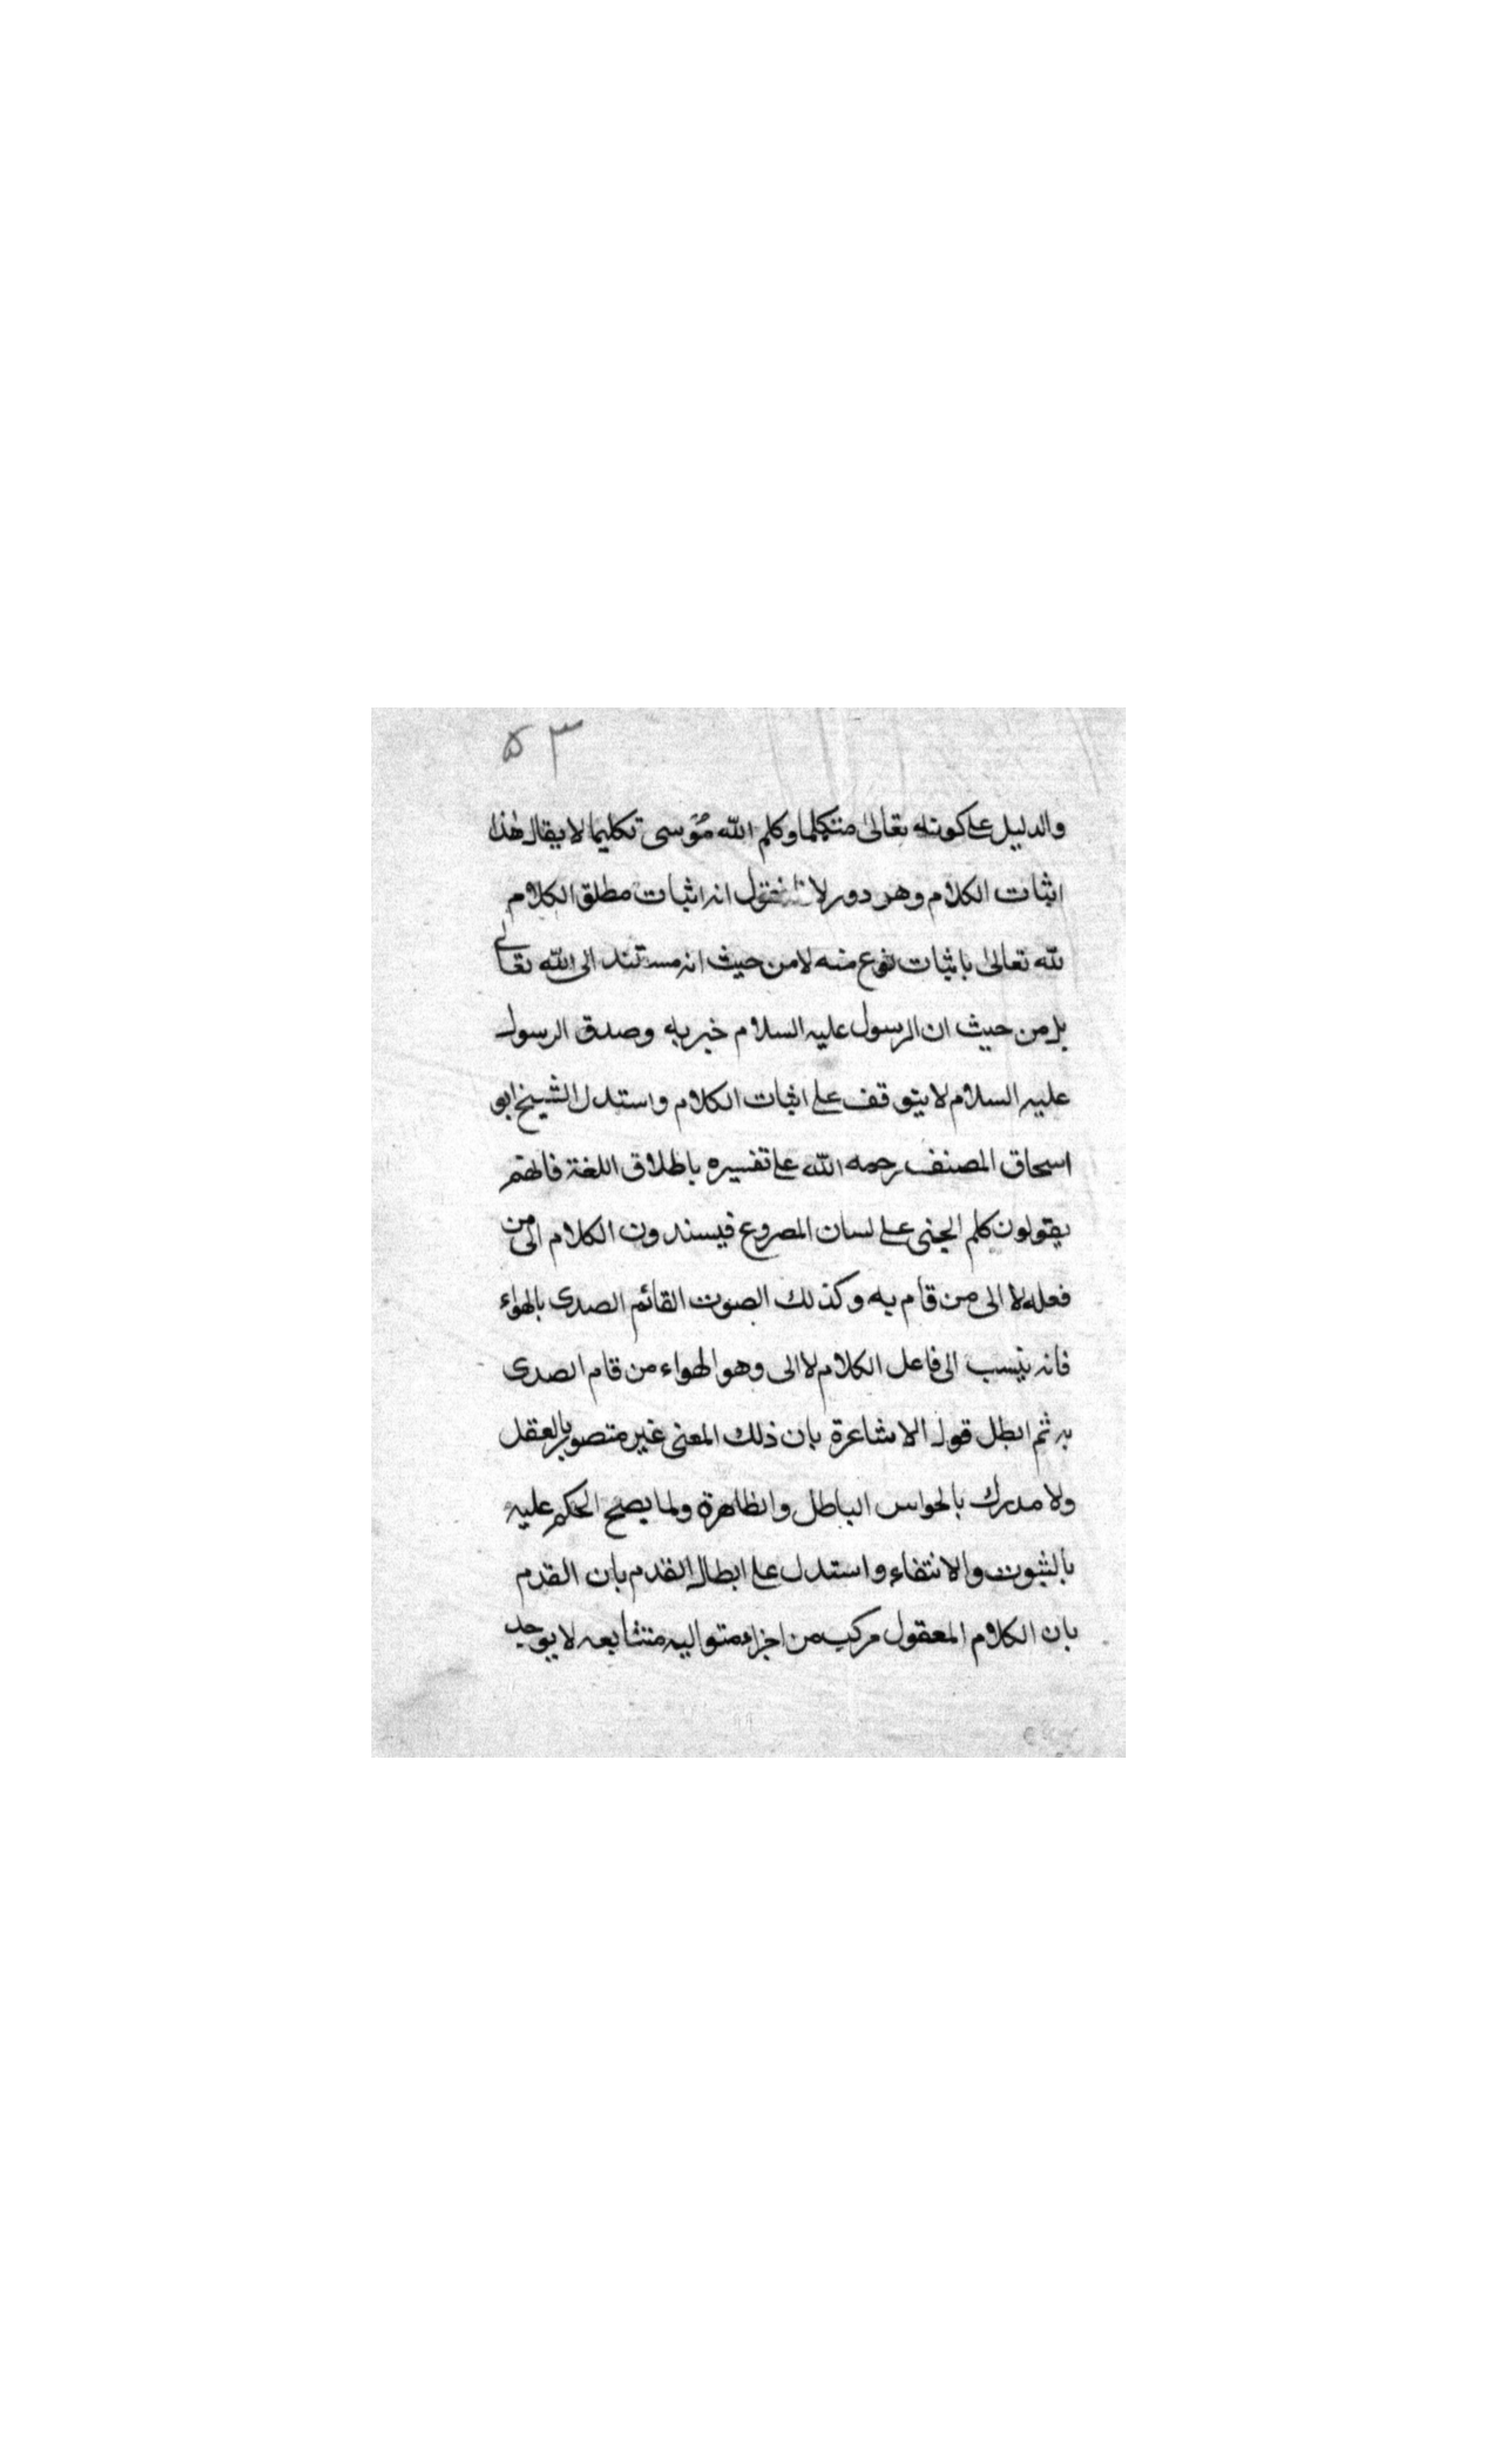 ٥٣
والدليل على كونه تعالى متكلما وكلم الله مُوسى تكليما لا يقال هذا
اثبات الكلام وهو دور لا نقول انه اثبات مطلق الكلام
لله تعالى باثبات نوع منه لا من حيث انه مستند الى الله تعالى
بل من حيث ان الرسول عليه السلام خبر به وصدق الرسول
عليه السلام لا يتوقف على اثبات الكلام واستدل الشيخ ابو
اسحاق المصنف رحمه الله على تفسيره باطلاق اللغة فانهم
يقولون كلم الجنى على لسان المصروع فيسندون الكلام الى من
فعله لا الى من قام به وكذلك الصوت القائم الصدى بالهواء
فانه ينسب الى فاعل الكلام لا الى وهو الهواء من قام الصدى
به ثم ابطل قول الاشاعرة بان ذلك المعنى غير متصور بالعقل
ولا مدرك بالحواس الباطل والظاهرة ولما يصح الحكم عليه
بالثبوت والانتفاء واستدل على ابطال القدم بان القدم
بان الكلام المعقول مركب من اجزاء متواليه متتابعه لا يوجد